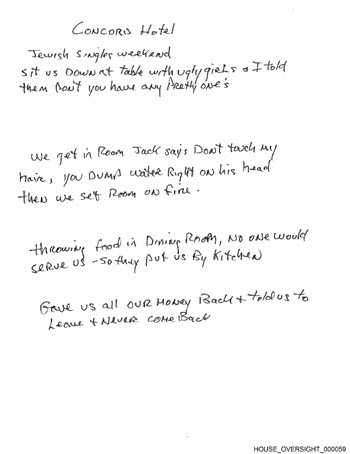 CONCORD Hotel
Jewish Singles weekend
Sit us Down at table with ugly girls & I told
them Don't you have any Pretty one's
We get in Room Jack says Don't touch My
hair, you Dump water Right on his head
then we set Room on fire.
throwing food in Dining Room, no one would
serve us - so they put us By Kitchen
Gave us all our Money Back & told us to
Leave & Never come Back
HOUSE_OVERSIGHT_000059